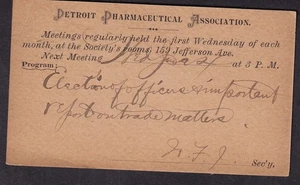 Detroit Pharmaceutical Association.
Meetings regularly held the first Wednesday of each
month, at the Society's rooms, 159 Jefferson Ave.
Next Meeting at 3 P. M.
Program:
Election of officers & important
report on trade matters.
Sec'y.